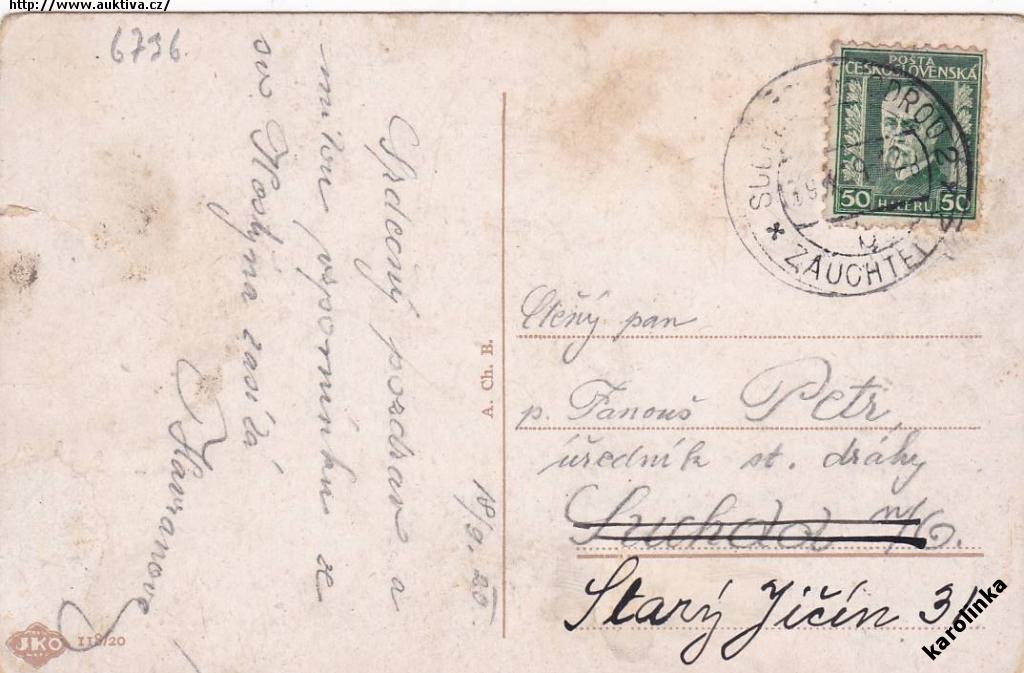 http://www.auktiva.cz/
6736
Srdečný pozdrav a
milou vzpomínku z
sv. Hostýna zasílá
Havranové
18/9. 20
A. Ch. B.
JKO
118/20
POŠTA
ČESKOSLOVENSKÁ
50 HALÉŘŮ 50
ODROU 2
* ZAUCHTEL
Ctěný pan
p. Fanouš Petr,
úředník st. dráhy
Suchdol n/O.
Starý Jičín 31
karolinka